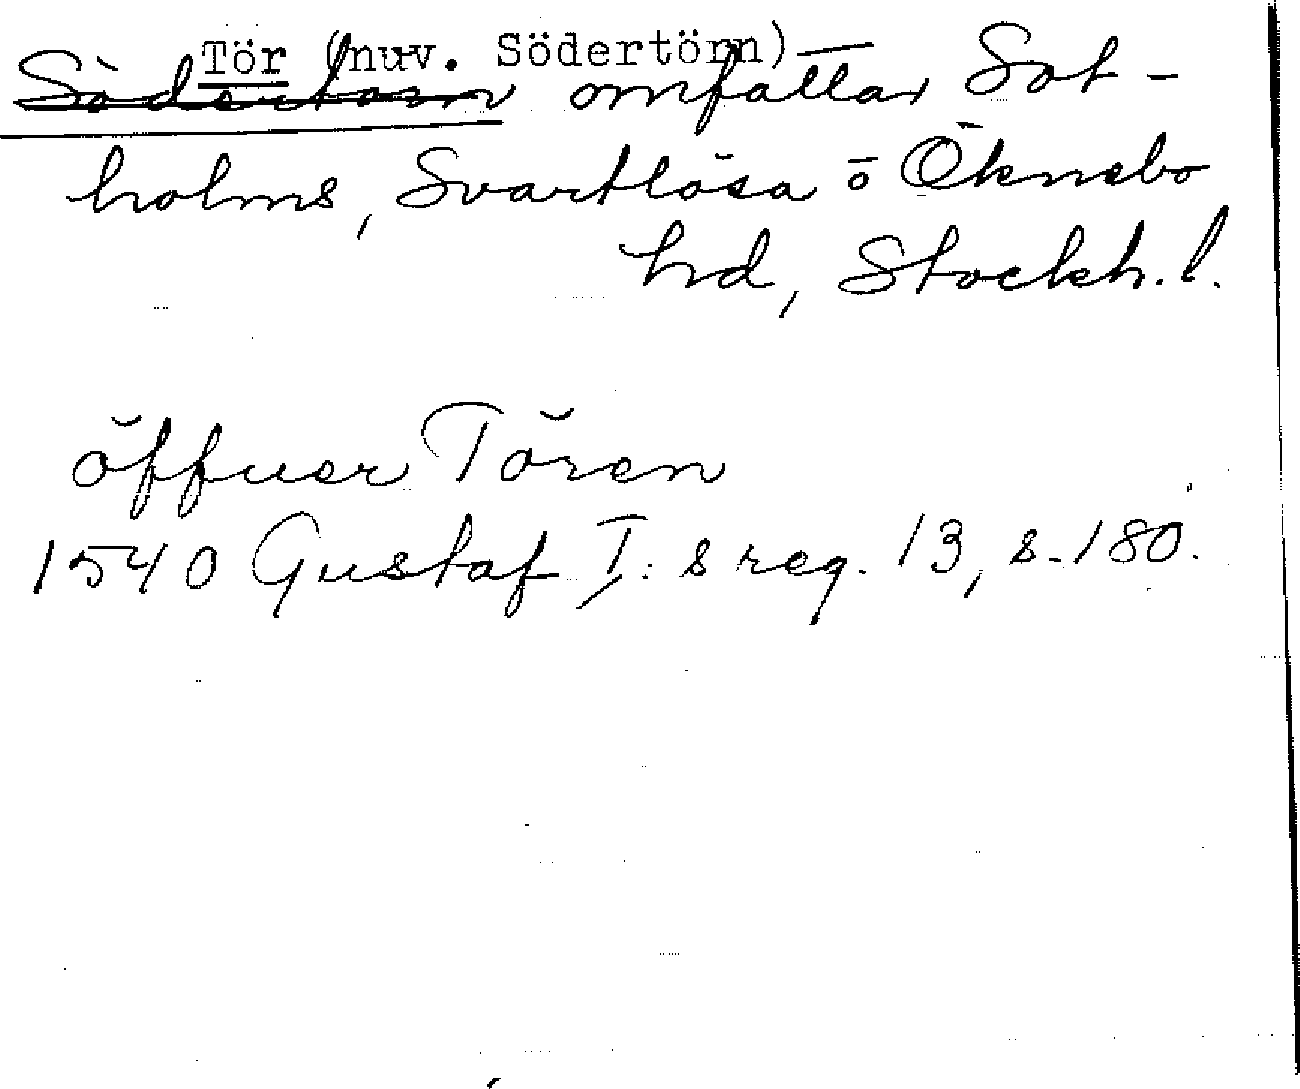 Tör (nuv. Södertörn)
Södertörn omfattar Sot-
holms, Svartlösa o Öknebo
hd, Stockh. l.
öffuer Tören
1540 Gustaf I:s reg. 13, s. 180.